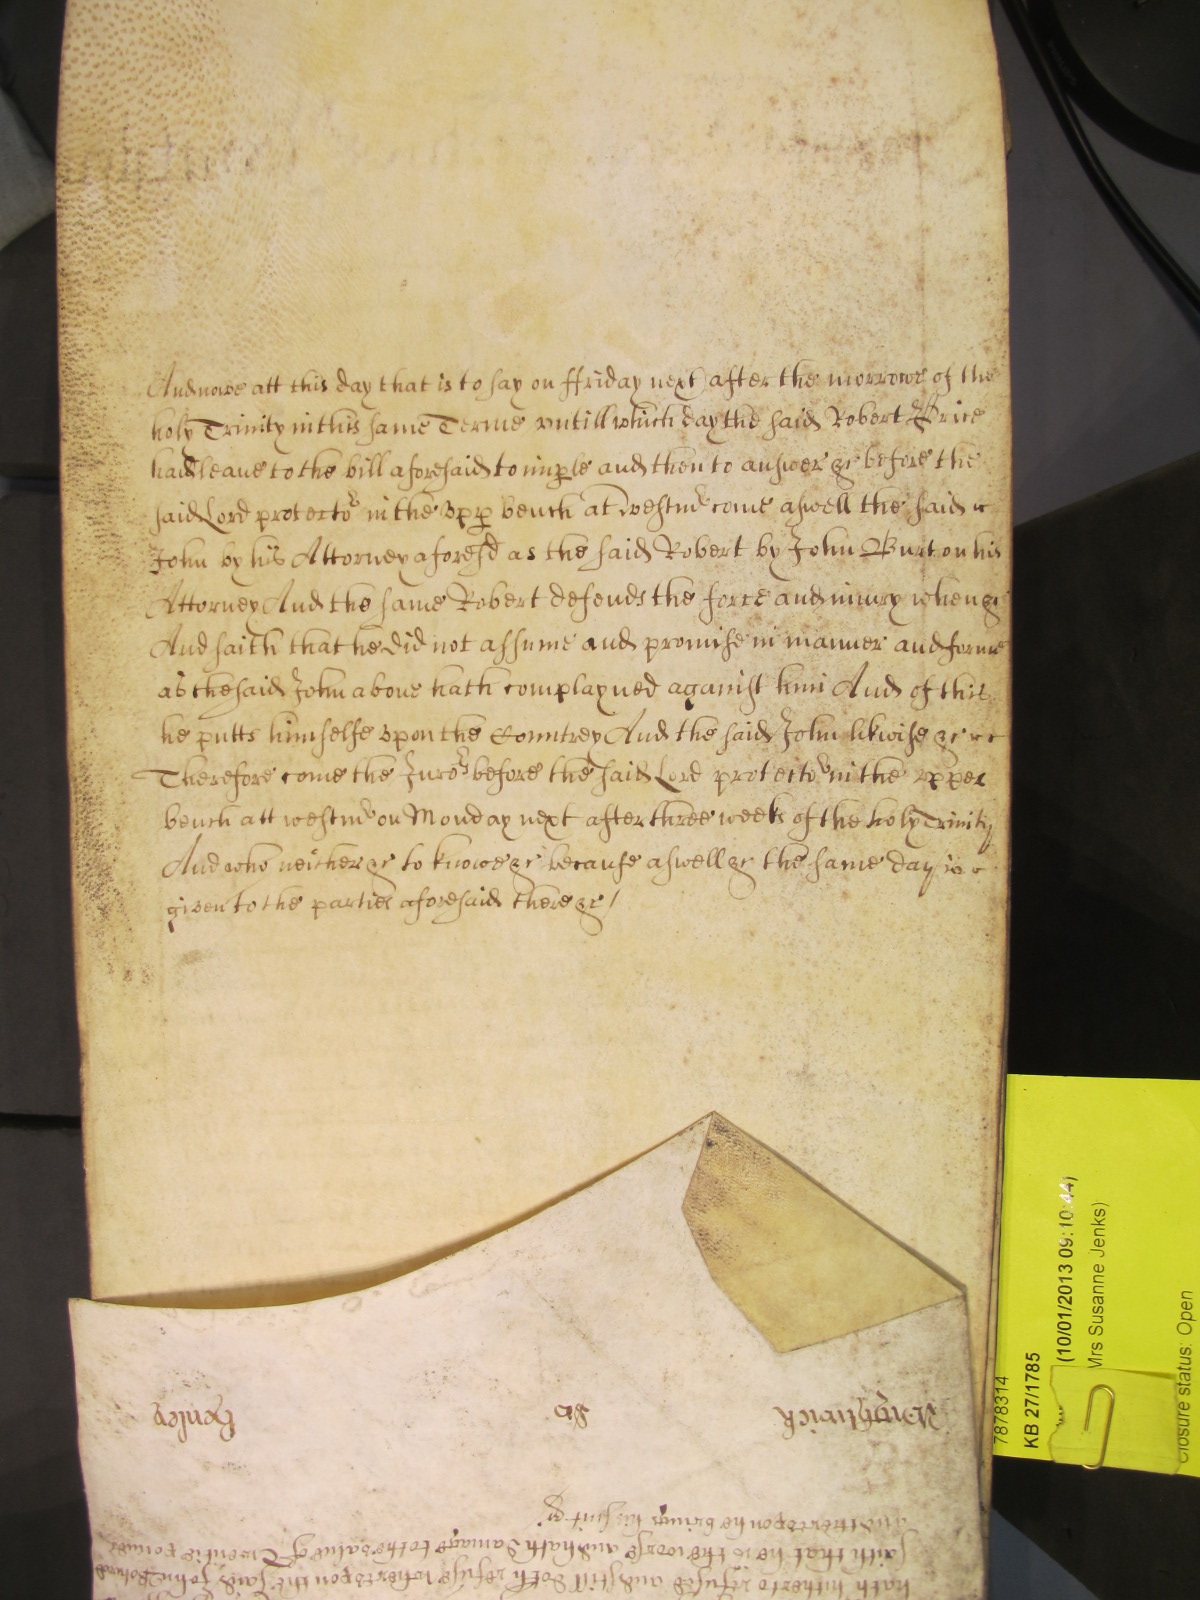 And nowe att this day that is to say on ffriday next after the morrowe of the
holy Trinity in this same Terme vntill which day the said Robert Price
had leaue to the bill aforesaid to imple and then to answer &c before the
said Lord protector in the vpp bench at westmr come aswell the said
John by his Attorney aforesd as the said Robert by John Burton his
Attorney And the same Robert defends the force and iniury when &c
And saith that he did not assume and promise in manner and forme
as the said John aboue hath complayned against him And of this
he putts himselfe vpon the Countrey And the said John likwise &c
Therefore come the Jurors before the said Lord protector in the vpper
bench att westmr on Monday next after three weeks of the holy Trinity
And who neither &c to knowe &c because aswell &c the same day is
given to the parties aforesaid there &c /
7878314
KB 27/1785
(10/01/2013 09:10:44)
Mrs Susanne Jenks)
Closure status: Open
Wrightwick
Henley
hath hitherto refused and still doth refuse wherevpon the said John
saith that he is the worse and hath damage to the value of Twentie
and therevpon he brings his suit &c